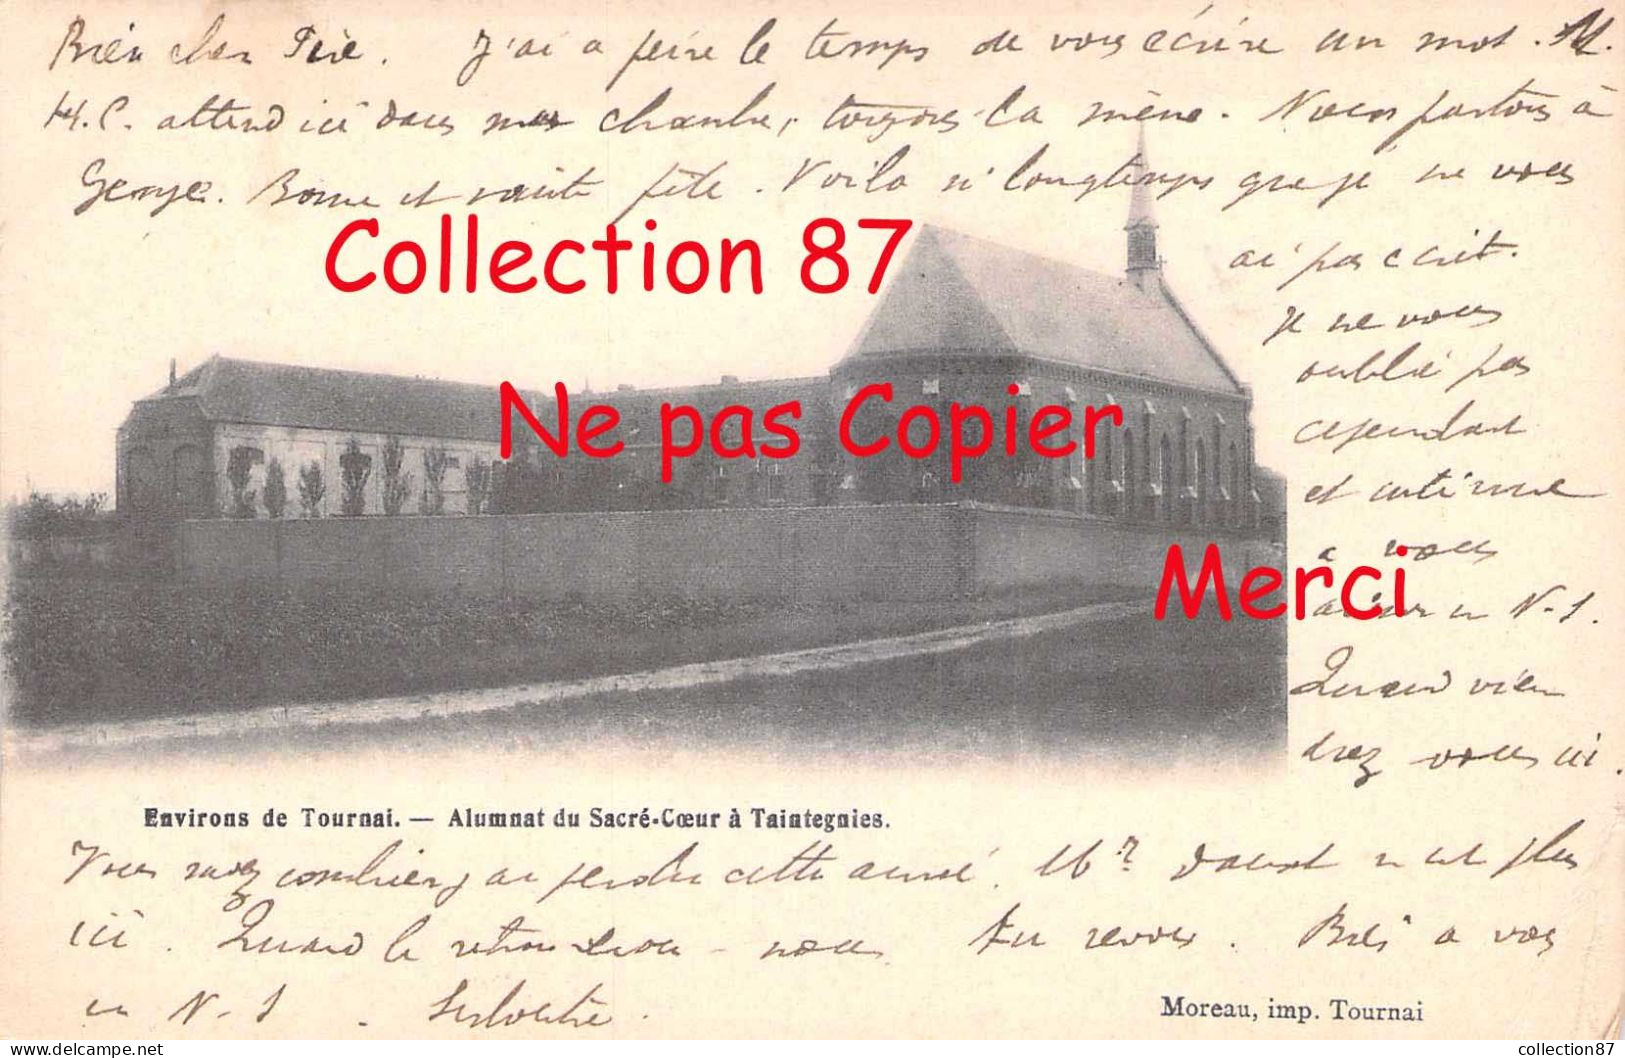 Bien cher Père. J'ai a peine le temps de vous écrire un mot. M.
H.C. attend ici dans ma chambre, toujours la même. Nous partons à
. Bonne et sainte fête. Voila si longtemps que je ne vous
ai pas ecrit.
Collection 87
je ne vous
oublie pas
Ne pas Copier
cependant
et
a vous
Merci
en N-S.
Quand vien
drez vous ici.
Environs de Tournai. — Alumnat du Sacré-Cœur à Taintegnies.
Vous combien j'ai perdu cette année. n'est plus
ici. Quand le nous. Au revoir. Bien a vous
en N-S.
Moreau, imp. Tournai
collection87